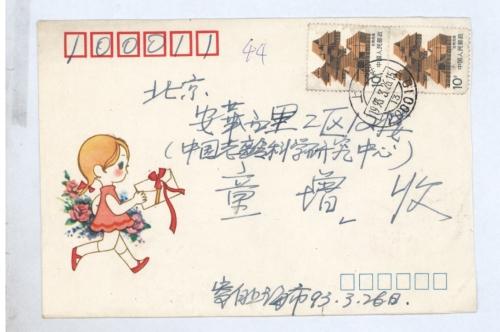 100011 44
北京
安华西里二区12楼
(中国老龄科学研究中心)
章 增 收
寄自上海市93.3.26日.
中国人民邮政
10分
中国人民邮政
10分